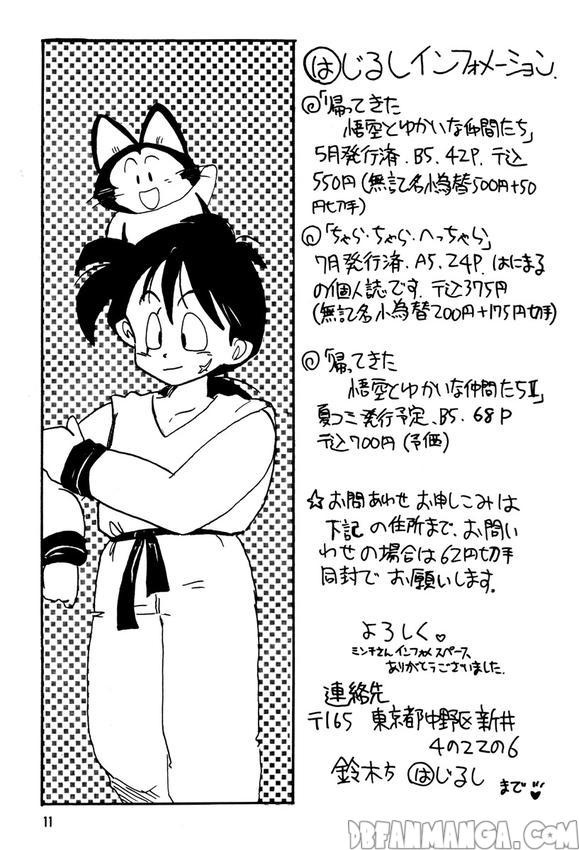 はじるしインフォメーション.
◎「帰ってきた
悟空とゆかいな仲間たち」
5月発行済.B5.42P.〒込
550円(無記名小為替500円+50
円切手)
◎「ちゃら・ちゃら・へっちゃら」
7月発行済.A5.24P.はにまる
の個人誌です.〒込375円
(無記名小為替200円+175円切手)
◎「帰ってきた
悟空とゆかいな仲間たちⅡ」
夏コミ発行予定、B5.68P
〒込700円(予価)
☆お問あわせお申しこみは
下記の住所まで、お問い
わせの場合は62円切手
同封でお願いします.
よろしく♡
ミンチさんインフォメスペース
ありがとうございました.
連絡先
〒165 東京都中野区新井
4の22の6
鈴木方 はじるし
まで
11
DBFANMANGA.COM